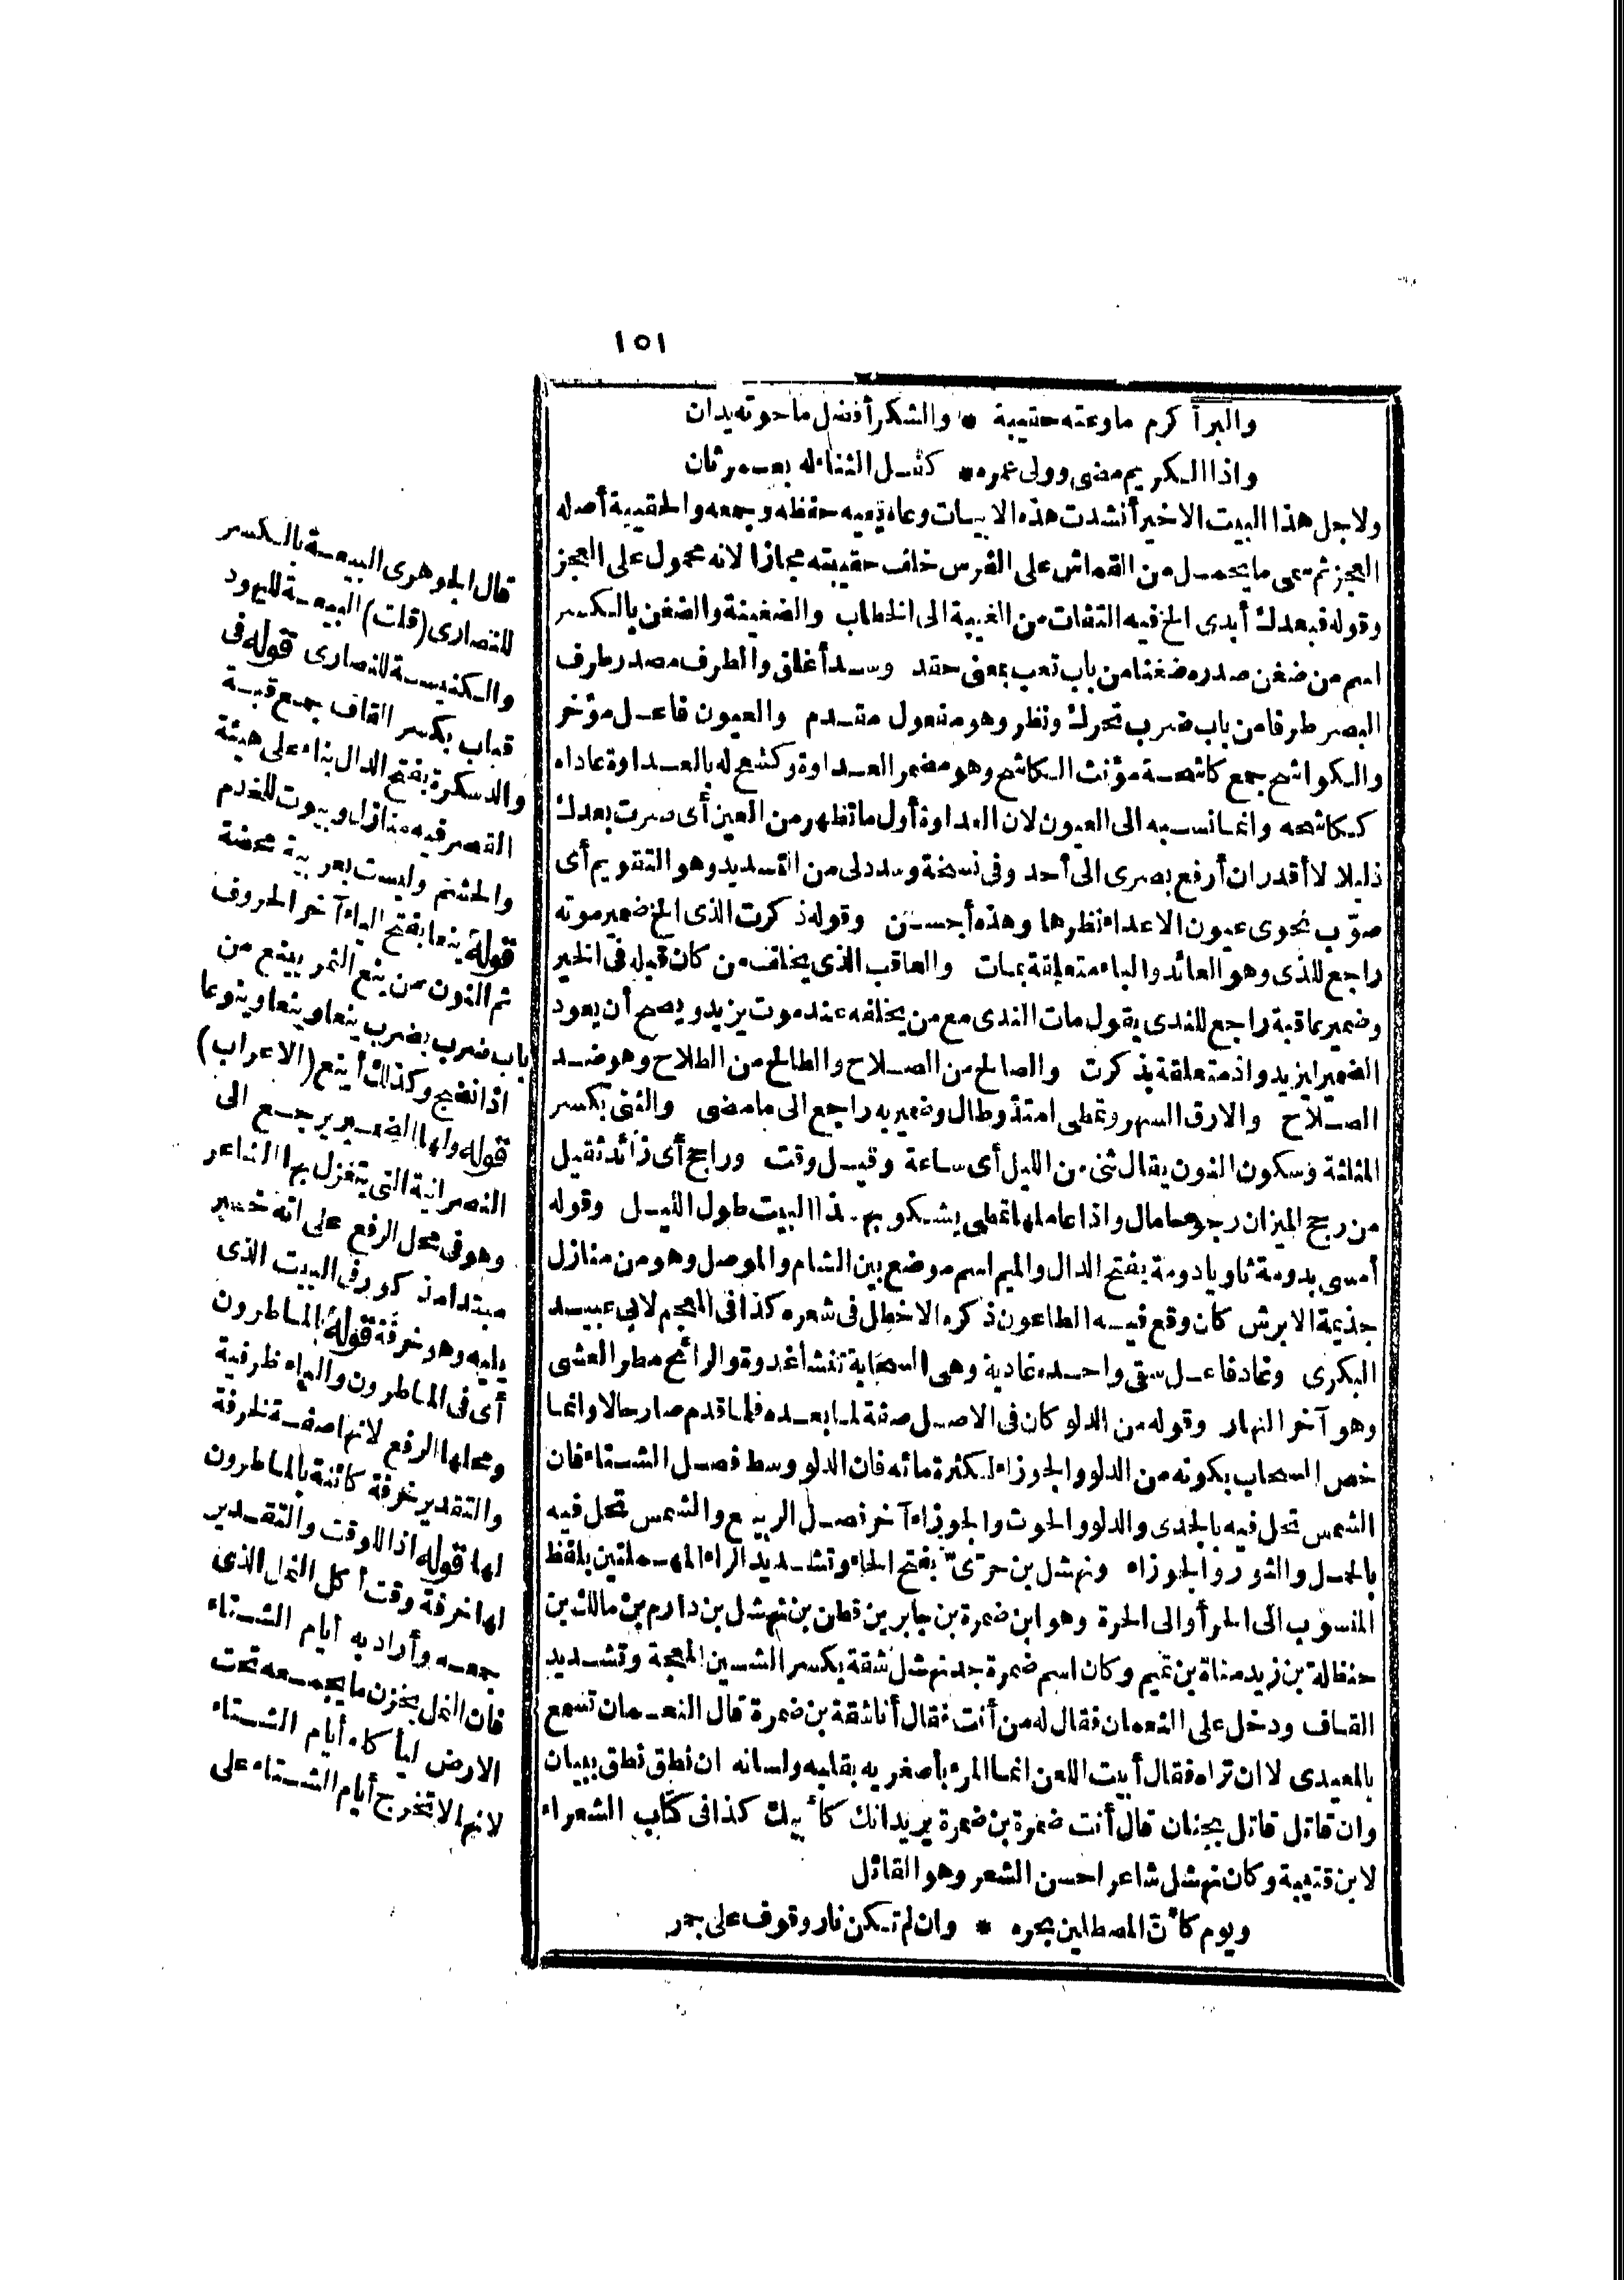 ١٥١
والبرأ كرم ماوعته حقيبة * والشكر أفضل ماحوته يدان
واذا الكريم مضى وولى عمره * كفل الثناء له بعمر ثان
ولاجل هذا البيت الاخير أنشدت هذه الابيات وعاه يعيه حفظه وجمعه والحقيبة أصله
العجز ثم سمى ما يحمل من القماش على الفرس خلف حقيبته مجازا لانه محمول على العجز
وقوله فبعدك أبدى الخ فيه التفات من الغيبة الى الخطاب والضغينة والضغن بالكسر
اسم من ضغن صدره ضغنا من باب تعب بمعنى حقد وسد أغلق والطرف مصدر طرف
البصر طرفا من باب ضرب تحرك ونظر وهو مفعول مقدم والعيون فاعل مؤخر
والكواشح جمع كاشحة مؤنث الكاشح وهو مضمر العداوة وكشح له بالعداوة عاداه
ككاشحه وانما نسبه الى العيون لان العداوة أول ما تظهر من العين أى صرت بعدك
ذليلا لا أقدر ان أرفع بصرى الى أحد وفى نسخة وسدد لى من التسديد وهو التقويم أى
صوّب نحوى عيون الاعداء نظرها وهذه أحسن وقوله ذكرت الذى الخ ضمير موته
راجع للذى وهو العائد والباء متعلقة بمات والعاقب الذى يخلف من كان قبله فى الخير
وضمير عاقبة راجع للندى يقول مات الندى مع من يخلفه عند موت يزيد ويصح أن يعود
الضمير ليزيد واذ متعلقة بذكرت والصالح من الصلاح والطالح من الطلاح وهو ضد
الصلاح والارق السهر وتمطى امتد وطال وضمير به راجع الى ما مضى والثنى بكسر
المثلثة وسكون النون يقال ثنى من الليل أى ساعة وقيل وقت وراجح أى زائد ثقيل
من رجح الميزان رجوحا مال واذا عاملها تمطى يشكو بهذا البيت طول الليل وقوله
أمسى بدومة ثاويا دومة بفتح الدال والميم اسم موضع بين الشام والموصل وهو من منازل
جذيمة الابرش كان وقع فيه الطاعون ذكره الاخطل فى شعره كذا فى المعجم لابى عبيد
البكرى وغاد فاعل سقى واحده غادية وهى السحابة تنشأ غدوة والرائح مطر العشى
وهو آخر النهار وقوله من الدلو كان فى الاصل صفة لما بعده فلما قدم صار حالا وانما
خص السحاب بكونه من الدلو والجوزاء لكثرة مائه فان الدلو وسط فصل الشتاء فان
الشمس تحل فيه بالجدى والدلو والحوت والجوزاء آخر فصل الربيع والشمس تحل فيه
بالحمل والثور والجوزاء ونهشل بن حرّىّ بفتح الحاء وتشديد الراء المهملتين بلفظ
المنسوب الى الحر أو الى الحرة وهو ابن ضمرة بن جابر بن قطن بن نهشل بن دارم بن مالك بن
حنظلة بن زيد مناة بن تميم وكان اسم ضمرة جد نهشل شقة بكسر الشين المعجمة وتشديد
القاف ودخل على النعمان فقال له من أنت فقال أنا شقة بن ضمرة قال النعمان تسمع
بالمعيدى لا ان تراه فقال أبيت اللعن انما المرء بأصغريه بقلبه ولسانه ان نطق نطق ببيان
وان قاتل قاتل بجنان قال أنت ضمرة بن ضمرة يريد انك كأبيك كذا فى كتاب الشعراء
لابن قتيبة وكان نهشل شاعرا حسن الشعر وهو القائل
ويوم كأن المصطلين بحره * وان لم تكن نار وقوف على جمر
قال الجوهرى البيعة بالكسر
للنصارى (قلت) البيعة لليهود
والكنيسة للنصارى قوله فى
قباب بكسر القاف جمع قبة
والدسكرة بفتح الدال بناء على هيئة
القصر فيه منازل وبيوت للخدم
والحشم وليست بعربية محضة
قوله ينعا بفتح الياء آخر الحروف
ثم النون من ينع الثمر يينع من
باب ضرب يضرب ينعا وينعا وينوعا
اذا نضج وكذلك أينع (الاعراب)
قوله ولها الضمير يرجع الى
النصرانية التى يتغزل بها الشاعر
وهو فى محل الرفع على انه خبر
مبتدا مذكور فى البيت الذى
يليه وهو خرفة قوله بالماطرون
أى فى الماطرون والباء ظرفية
ومحلها الرفع لانها صفة لخرفة
والتقدير خرفة كائنة بالماطرون
لها قوله اذا للوقت والتقدير
لها خرفة وقت أكل النمل الذى
جمعه وأراد به أيام الشتاء
فان النمل يخزن ما يجمعه تحت
الارض ليأكله أيام الشتاء
لانها لا تخرج أيام الشتاء على